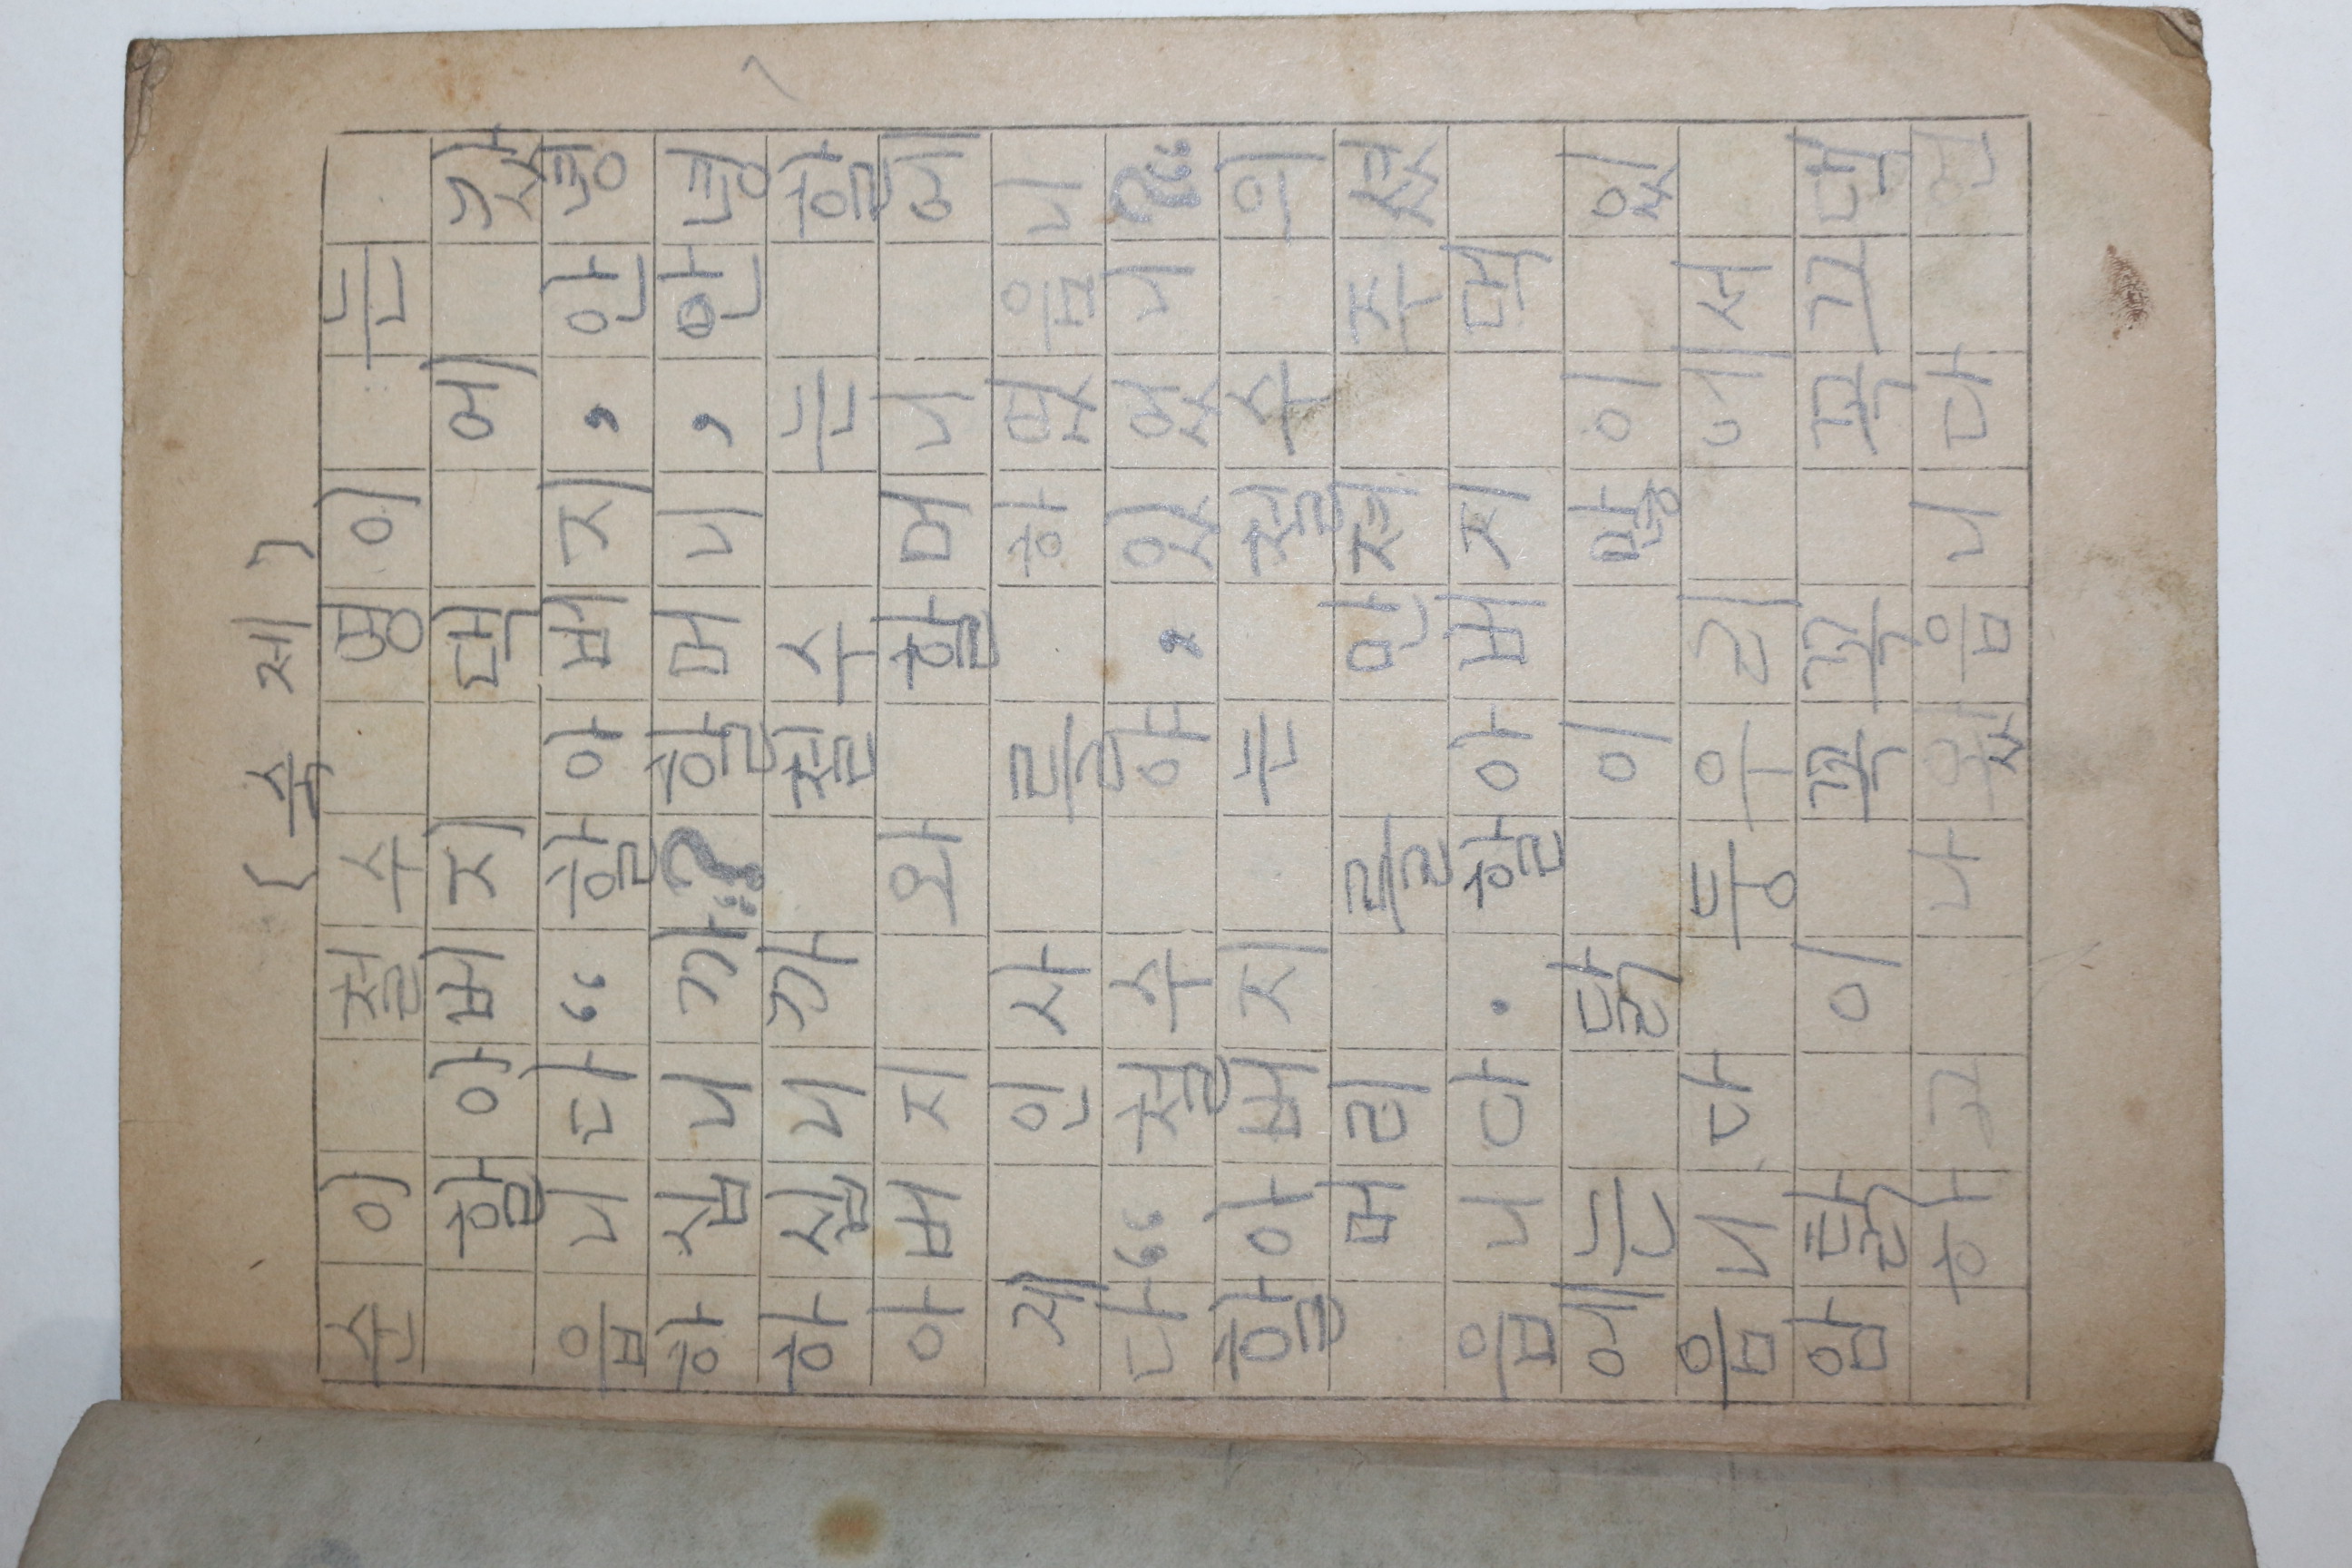 [숙제]
순이 철수 영이 는
할아버지 댁 에 갔
읍니다“할아버지, 안녕
하십니까?할머니, 안녕
하십니까 철수 는 할
아버지 와 할머니 에
게 인사 를 하였읍니
다“철수 야, 있었니?“
할아버지 는 철수 의
머리 를 만져 주셨
읍니다. 할아버지 댁
에는 닭 이 많이 있
읍니다 둥우리 에서
암닭 이 꼭꼭 꼭끄댁
하고 나왔읍니다